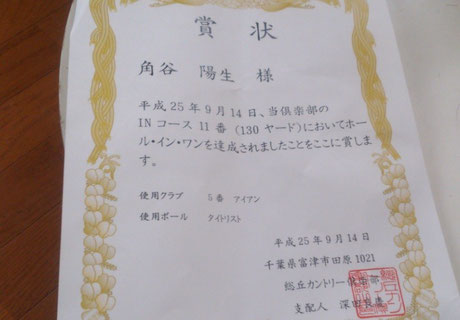 賞状
角谷 陽生 様
平成25年9月14日、当倶楽部の
INコース11番(130ヤード)においてホー
ル・イン・ワンを達成されましたことをここに賞しま
す。
使用クラブ 5番 アイアン
使用ボール タイトリスト
平成25年9月14日
千葉県富津市田原1021
総丘カントリー倶楽部
支配人 深田